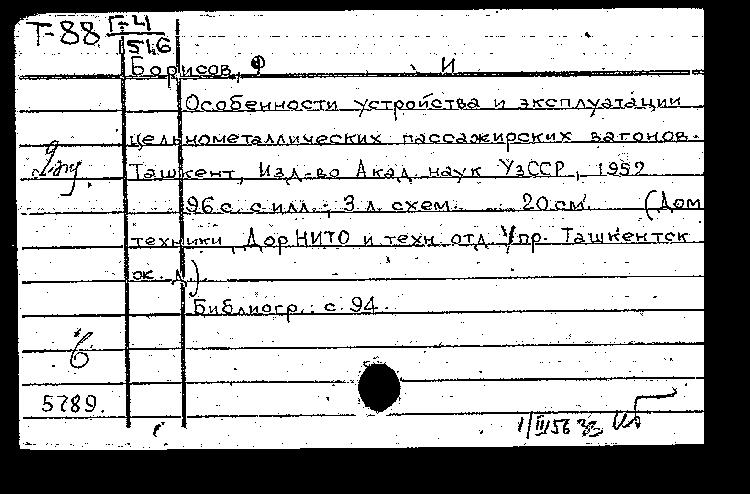 Т-88 Г-4
1516
Борисов, Ф И
Особенности устройства и эксплуатации
цельнометаллических пассажирских вагонов.
Ташкент, Изд-во Акад. наук УзССР, 1952
96 с. с илл.; 3 л. схем. 20 см. (Дом
техники Дор.НИТО и техн. отд. Упр. Ташкентск
ж. д.)
Библиогр.: с. 94.
б
5789.
1/III 56